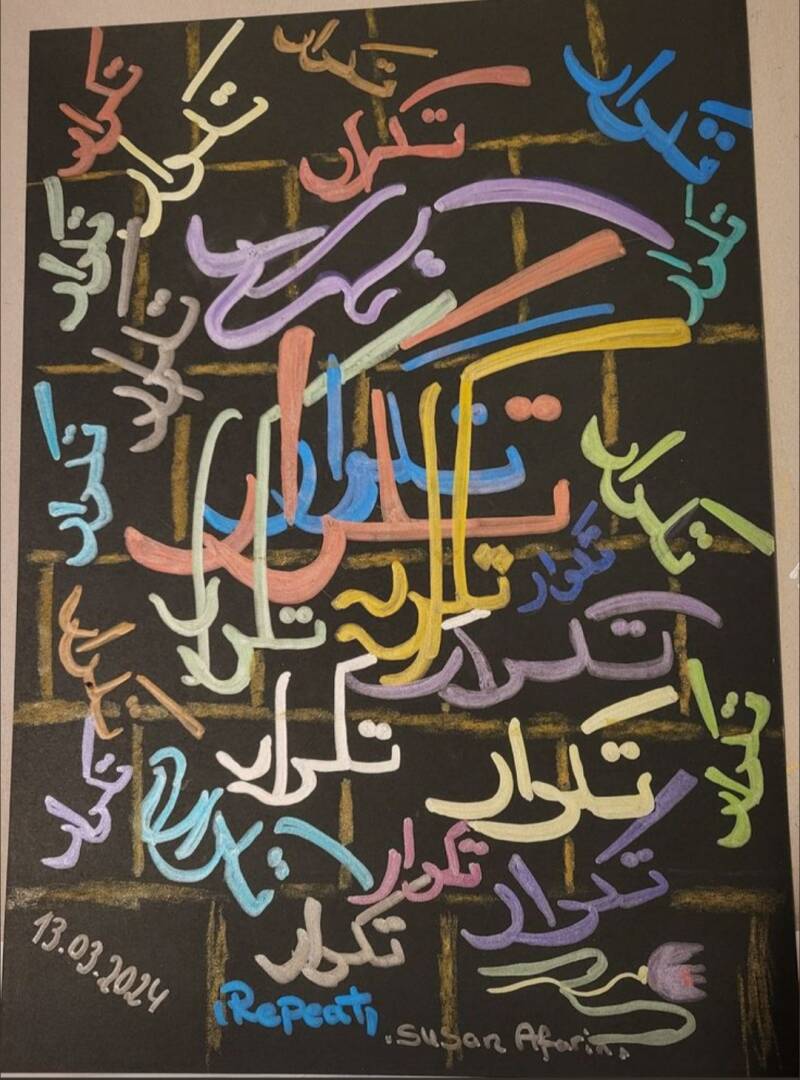 تکرار
تکرار
تکرار
تکرار
تکرار
تکرار
تکرار
تکرار
تکرار
تکرار
تکرار
تکرار
تکرار
تکرار
تکرار
تکرار
تکرار
تکرار
تکرار
تکرار
تکرار
تکرار
تکرار
تکرار
تکرار
تکرار
13.03.2024
Repeat
.Susan Afarin.